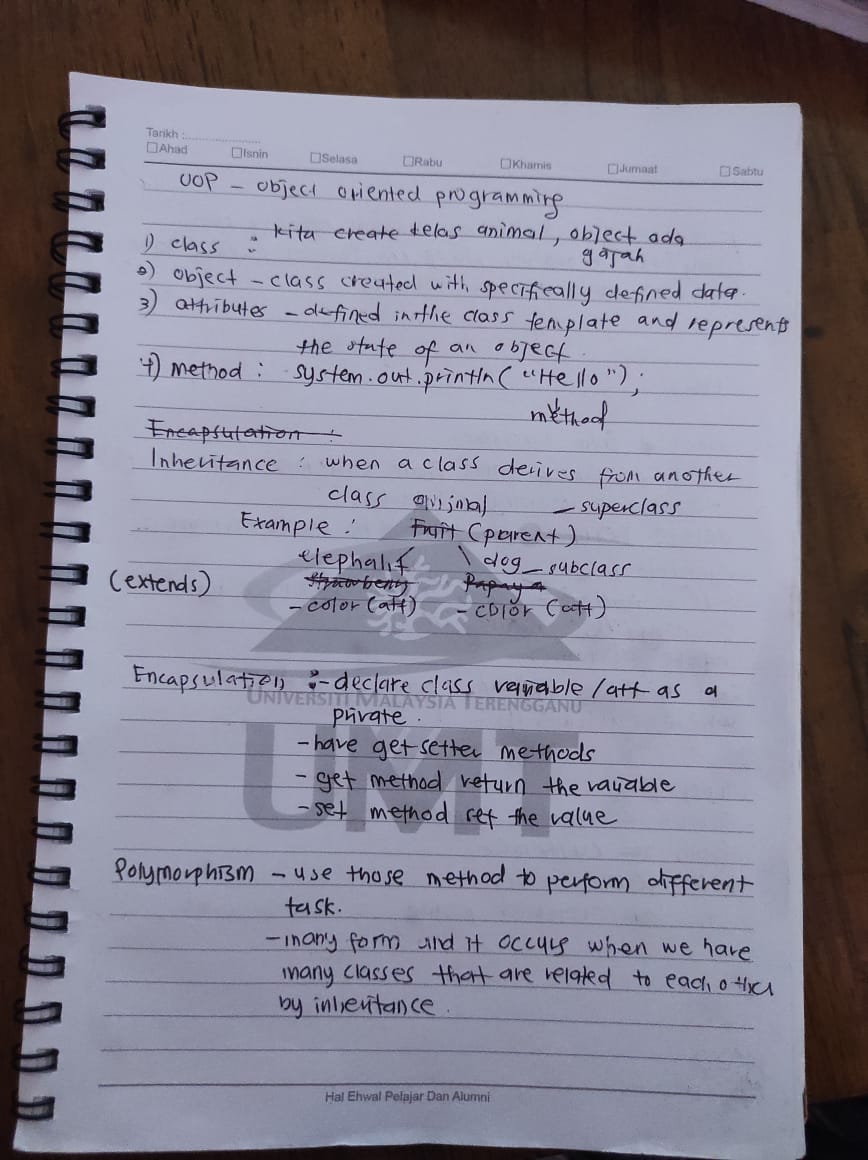 Tarikh :......................
☐Ahad ☐Isnin ☐Selasa ☐Rabu ☐Khamis ☐Jumaat ☐Sabtu
OOP - object oriented programming
1) class : kita create kelas animal, object ada
gajah
2) object - class created with specifically defined data.
3) attributes - defined in the class template and represents
the state of an object.
4) method : system.out.println("Hello");
method
Encapsulation :
Inheritance : when a class derives from another
class animal - superclass
Example : Fruit (parent)
elephant \ dog - subclass
(extends) Strawberry Papaya
- color (att) - color (att)
Encapsulation :- declare class variable / att as a
UNIVERSITI MALAYSIA TERENGGANU
private.
- have get setter methods
- get method return the variable
- set method set the value
UMT
Polymorphism - use those method to perform different
task.
- many form and it occurs when we have
many classes that are related to each other
by inheritance.
Hal Ehwal Pelajar Dan Alumni